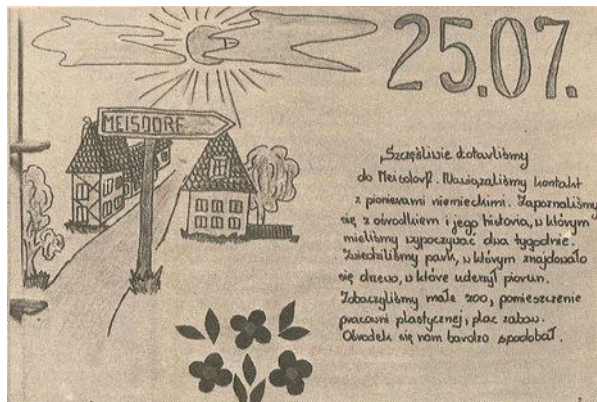 25.07.
MEISDORF
„Szczęśliwie dotarliśmy
do Meisdorf. Nawiązaliśmy kontakt
z pionierami niemieckimi. Zapoznaliśmy
się z ośrodkiem i jego historią, w którym
mieliśmy wypoczywać dwa tygodnie.
Zwiedziliśmy park, w którym znajdowało
się drzewo, w które uderzył piorun.
Zobaczyliśmy małe zoo, pomieszczenie
pracowni plastycznej, plac zabaw.
Ośrodek się nam bardzo spodobał.